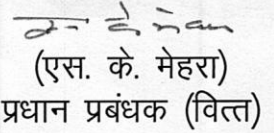 (एस. के. मेहरा)
प्रधान प्रबंधक (वित्त)